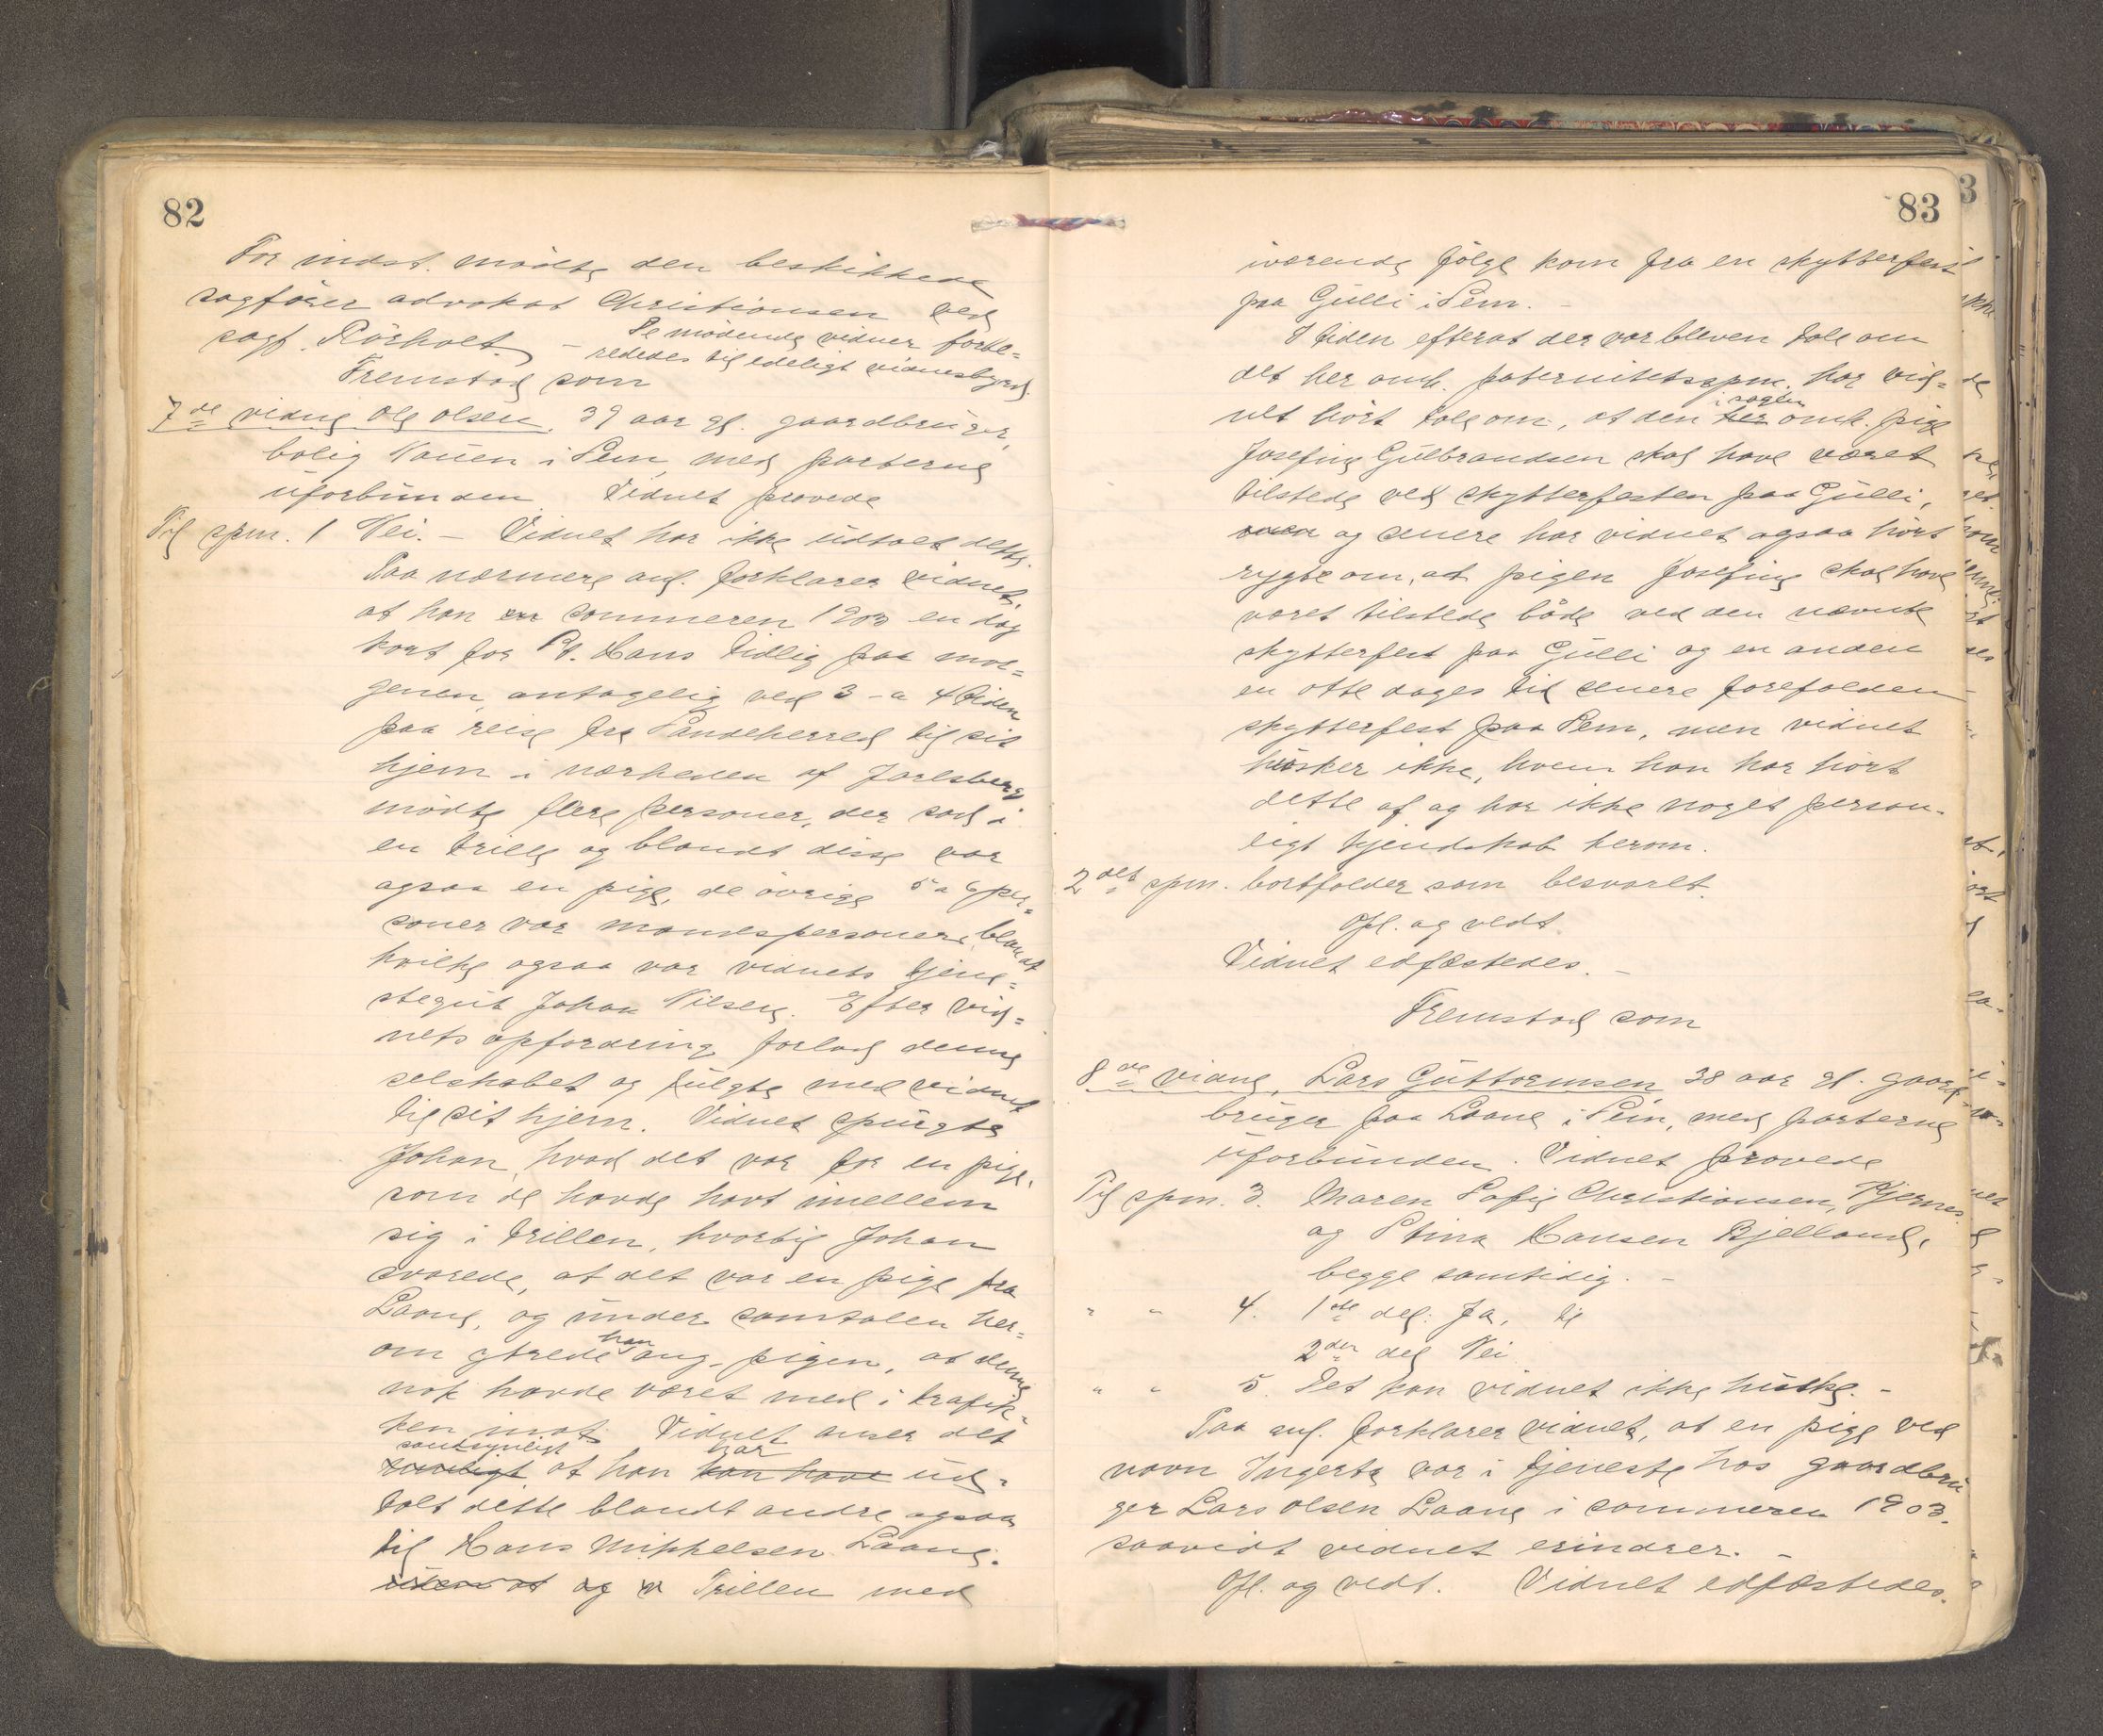 82
For indst. mödte den beskikkede
sagförer advokat Christiansen ved
sagf. Rörholt. – De mödende vidner forbe=
redtes til edeligt vidnesbyrd.
Fremstod som
7de vidne Ole Olsen, 39 aar gl. gaardbruger,
bolig Nauen i Sem, med parterne
uforbunden. Vidnet provede
Til spm. 1 Nei. – Vidnet har ikke udtalt dette.
Paa nærmere anl. forklarer vidnet,
at han en sommeren 1903 en dag
kort for St. Hans tidlig paa mor=
genen, antagelig ved 3 – a 4 tiden
paa reise fra Sandeherred til sit
hjem i nærheden af Jarlsberg
mödte flere personer, der sad i
en trille og blandt disse var
ogsaa en pige, de övrige 5 a 6 per=
soner var mandspersoner, blandt
hvilke ogsaa var vidnets tjene=
stegut Johan Nilsen. Efter vid=
nets opfordring forlod denne
selskabet og fulgte med vidnet
til sit hjem. Vidnet spurgte
Johan, hvad det var for en pige,
som de havde havt imellem
sig i trillen, hvortil Johan
svarede, at det var en pige fra
Laane, og under samtalen her=
om ytrede han ang. pigen, at denne
nok havde været med i trafik=
ken inat. Vidnet anser det
sandsynligt
rimeligt at han kan have har ud=
talt dette blandt andre ogsaa
til Hans Mikkelsen Laane.
uden at og Trillen med
83
iværende følge kom fra en skytterfest
paa Gulli i Sem. –
I tiden efterat der var bleven tale om
det her omh. paternitetsspm. har vid=
net hört tale om, at den her i sagen omh. pige
Josefine Gulbrandsen skal have været
tilstede ved skytterfesten paa Gulli,
men og senere har vidnet ogsaa hört
rygte om, at pigen Josefine skal have
været tilstede både ved den nævnte
skytterfest paa Gulli og en anden
en otte dages tid senere forefalden
skytterfest paa Sem, men vidnet
husker ikke, hvem han har hört
dette af og har ikke noget person=
ligt kjendskab herom.
2det spm. bortfalder som besvaret.
Opl. og vedt.
Vidnet edfæstedes. –
Fremstod som
8de vidne, Lars Guttormsen 38 aar gl. gaard=
bruger paa Laane i Sem, med parterne
uforbunden. Vidnet provede
Til spm. 3. Maren Sofie Christiansen, Kjernes
og Stina Hansen Bjelland,
begge samtidig. –
" " 4. 1ste del: Ja, til
2den del Nei
" " 5. Det kan vidnet ikke huske. –
Paa anl. forklarer vidnet, at en pige ved
navn Ingerta var i tjeneste hos gaardbru
ger Lars Olsen Laane i sommeren 1903.
saavidt vidnet erindrer. –
Opl. og vedt. Vidnet edfæstedes.